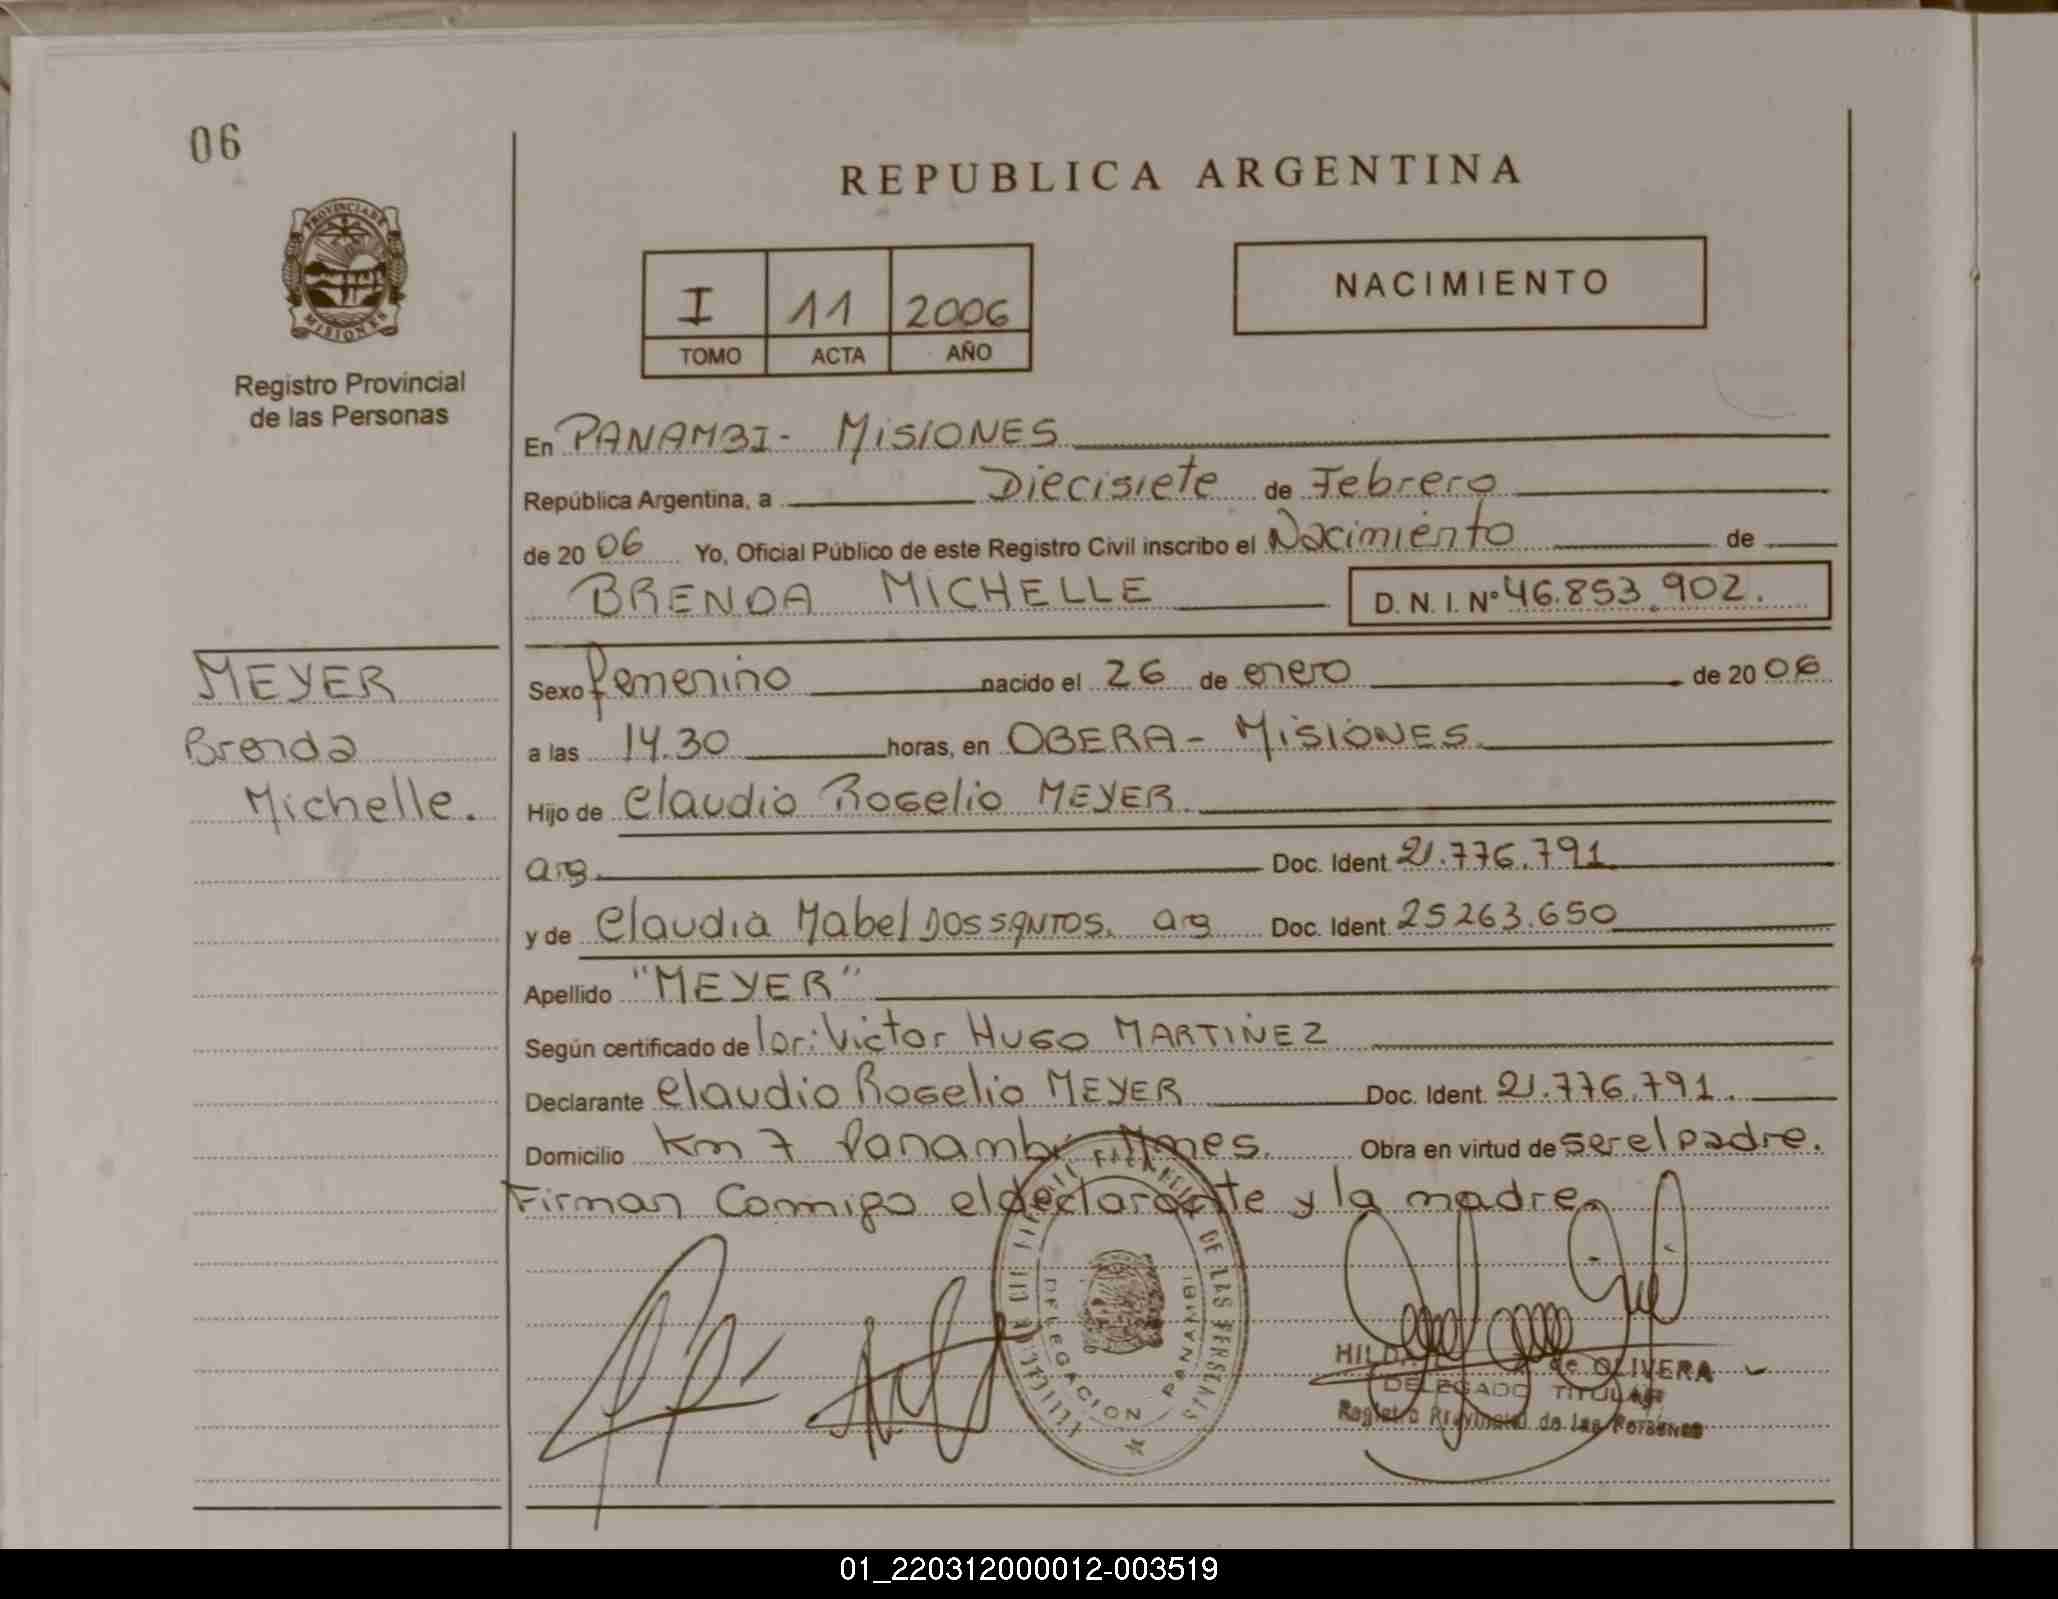 06
REPUBLICA ARGENTINA
PROVINCIA DE
MISIONES
Registro Provincial
de las Personas
I 11 2006
TOMO ACTA AÑO
NACIMIENTO
En PANAMBI - MISIONES
República Argentina, a Diecisiete de Febrero
de 20 06 Yo, Oficial Público de este Registro Civil inscribo el Nacimiento de
BRENDA MICHELLE D. N. I. Nº 46.853.902.
MEYER
Brenda
Michelle.
Sexo femenino nacido el 26 de enero de 20 06
a las 14.30 horas, en OBERA - MISIONES.
Hijo de Claudio Rogelio MEYER.
arg. Doc. Ident. 21.776.791
y de Claudia Mabel DOS SANTOS. arg Doc. Ident. 25263.650
Apellido "MEYER"
Según certificado de Victor HUGO MARTINEZ
Declarante Claudio Rogelio MEYER Doc. Ident. 21.776.791.
Domicilio Km 7 Panambi Mnes. Obra en virtud de ser el padre.
Firman Comigo el declarante y la madre.
DE LAS PERSONAS
DELEGACION PANAMBI
de OLIVERA
DELEGADO TITULAR
Registro Provincial de las Personas
01_220312000012-003519